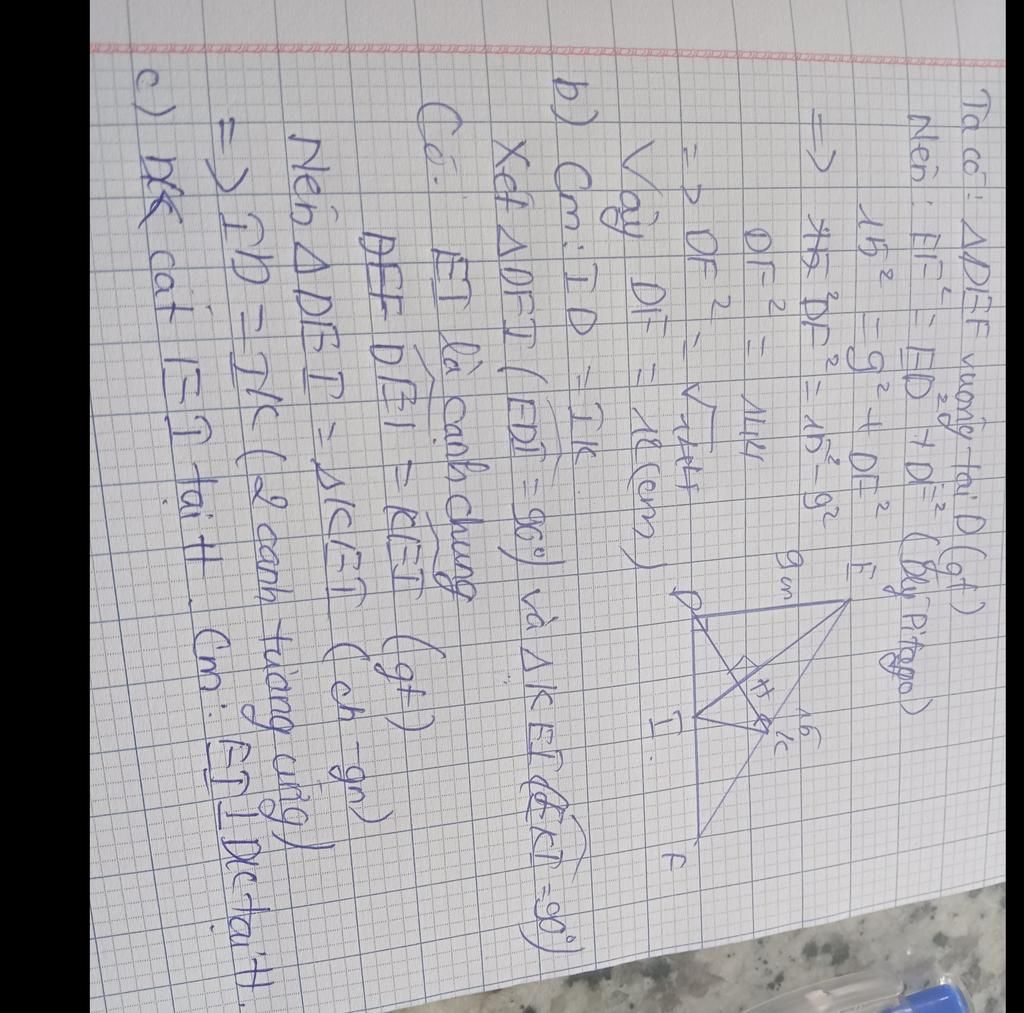 Ta có: ΔDEF vuông tại D (gt)
Nên: EF² = ED² + DF² (Đly Pitago)
15² = 9² + DF²
=> DF² = 15² - 9²
DF² = 144
=> DF² = √144
Vậy DF = 12 (cm)
E
9cm
15
D
H
K
I
F
b) Cm: ID = IK
Xét ΔDEI (EDI = 90°) và ΔKEI (EKI = 90°)
Có: EI là cạnh chung
DEI = KEI (gt)
Nên ΔDEI = ΔKEI (ch - gn)
=> ID = IK (2 cạnh tương ứng)
c) DK cắt EI tại H. Cm: EI ⊥ DK tại H.